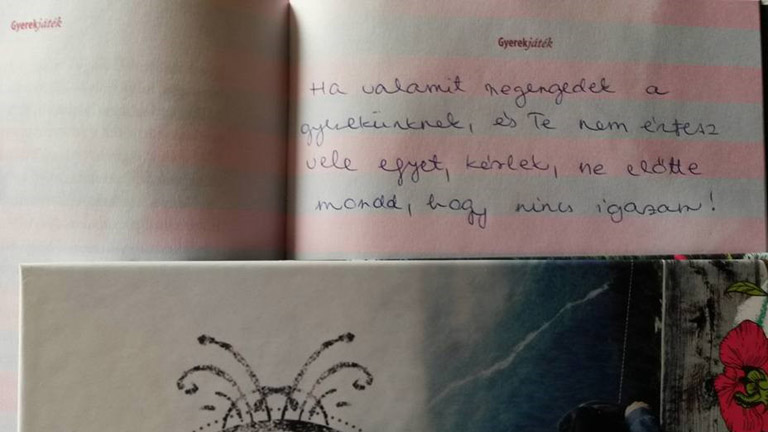 Gyerekjáték
Gyerekjáték
Ha valamit megengedek a
gyerekünknek, és Te nem értesz
vele egyet, kérlek, ne előtte
mondd, hogy nincs igazam!